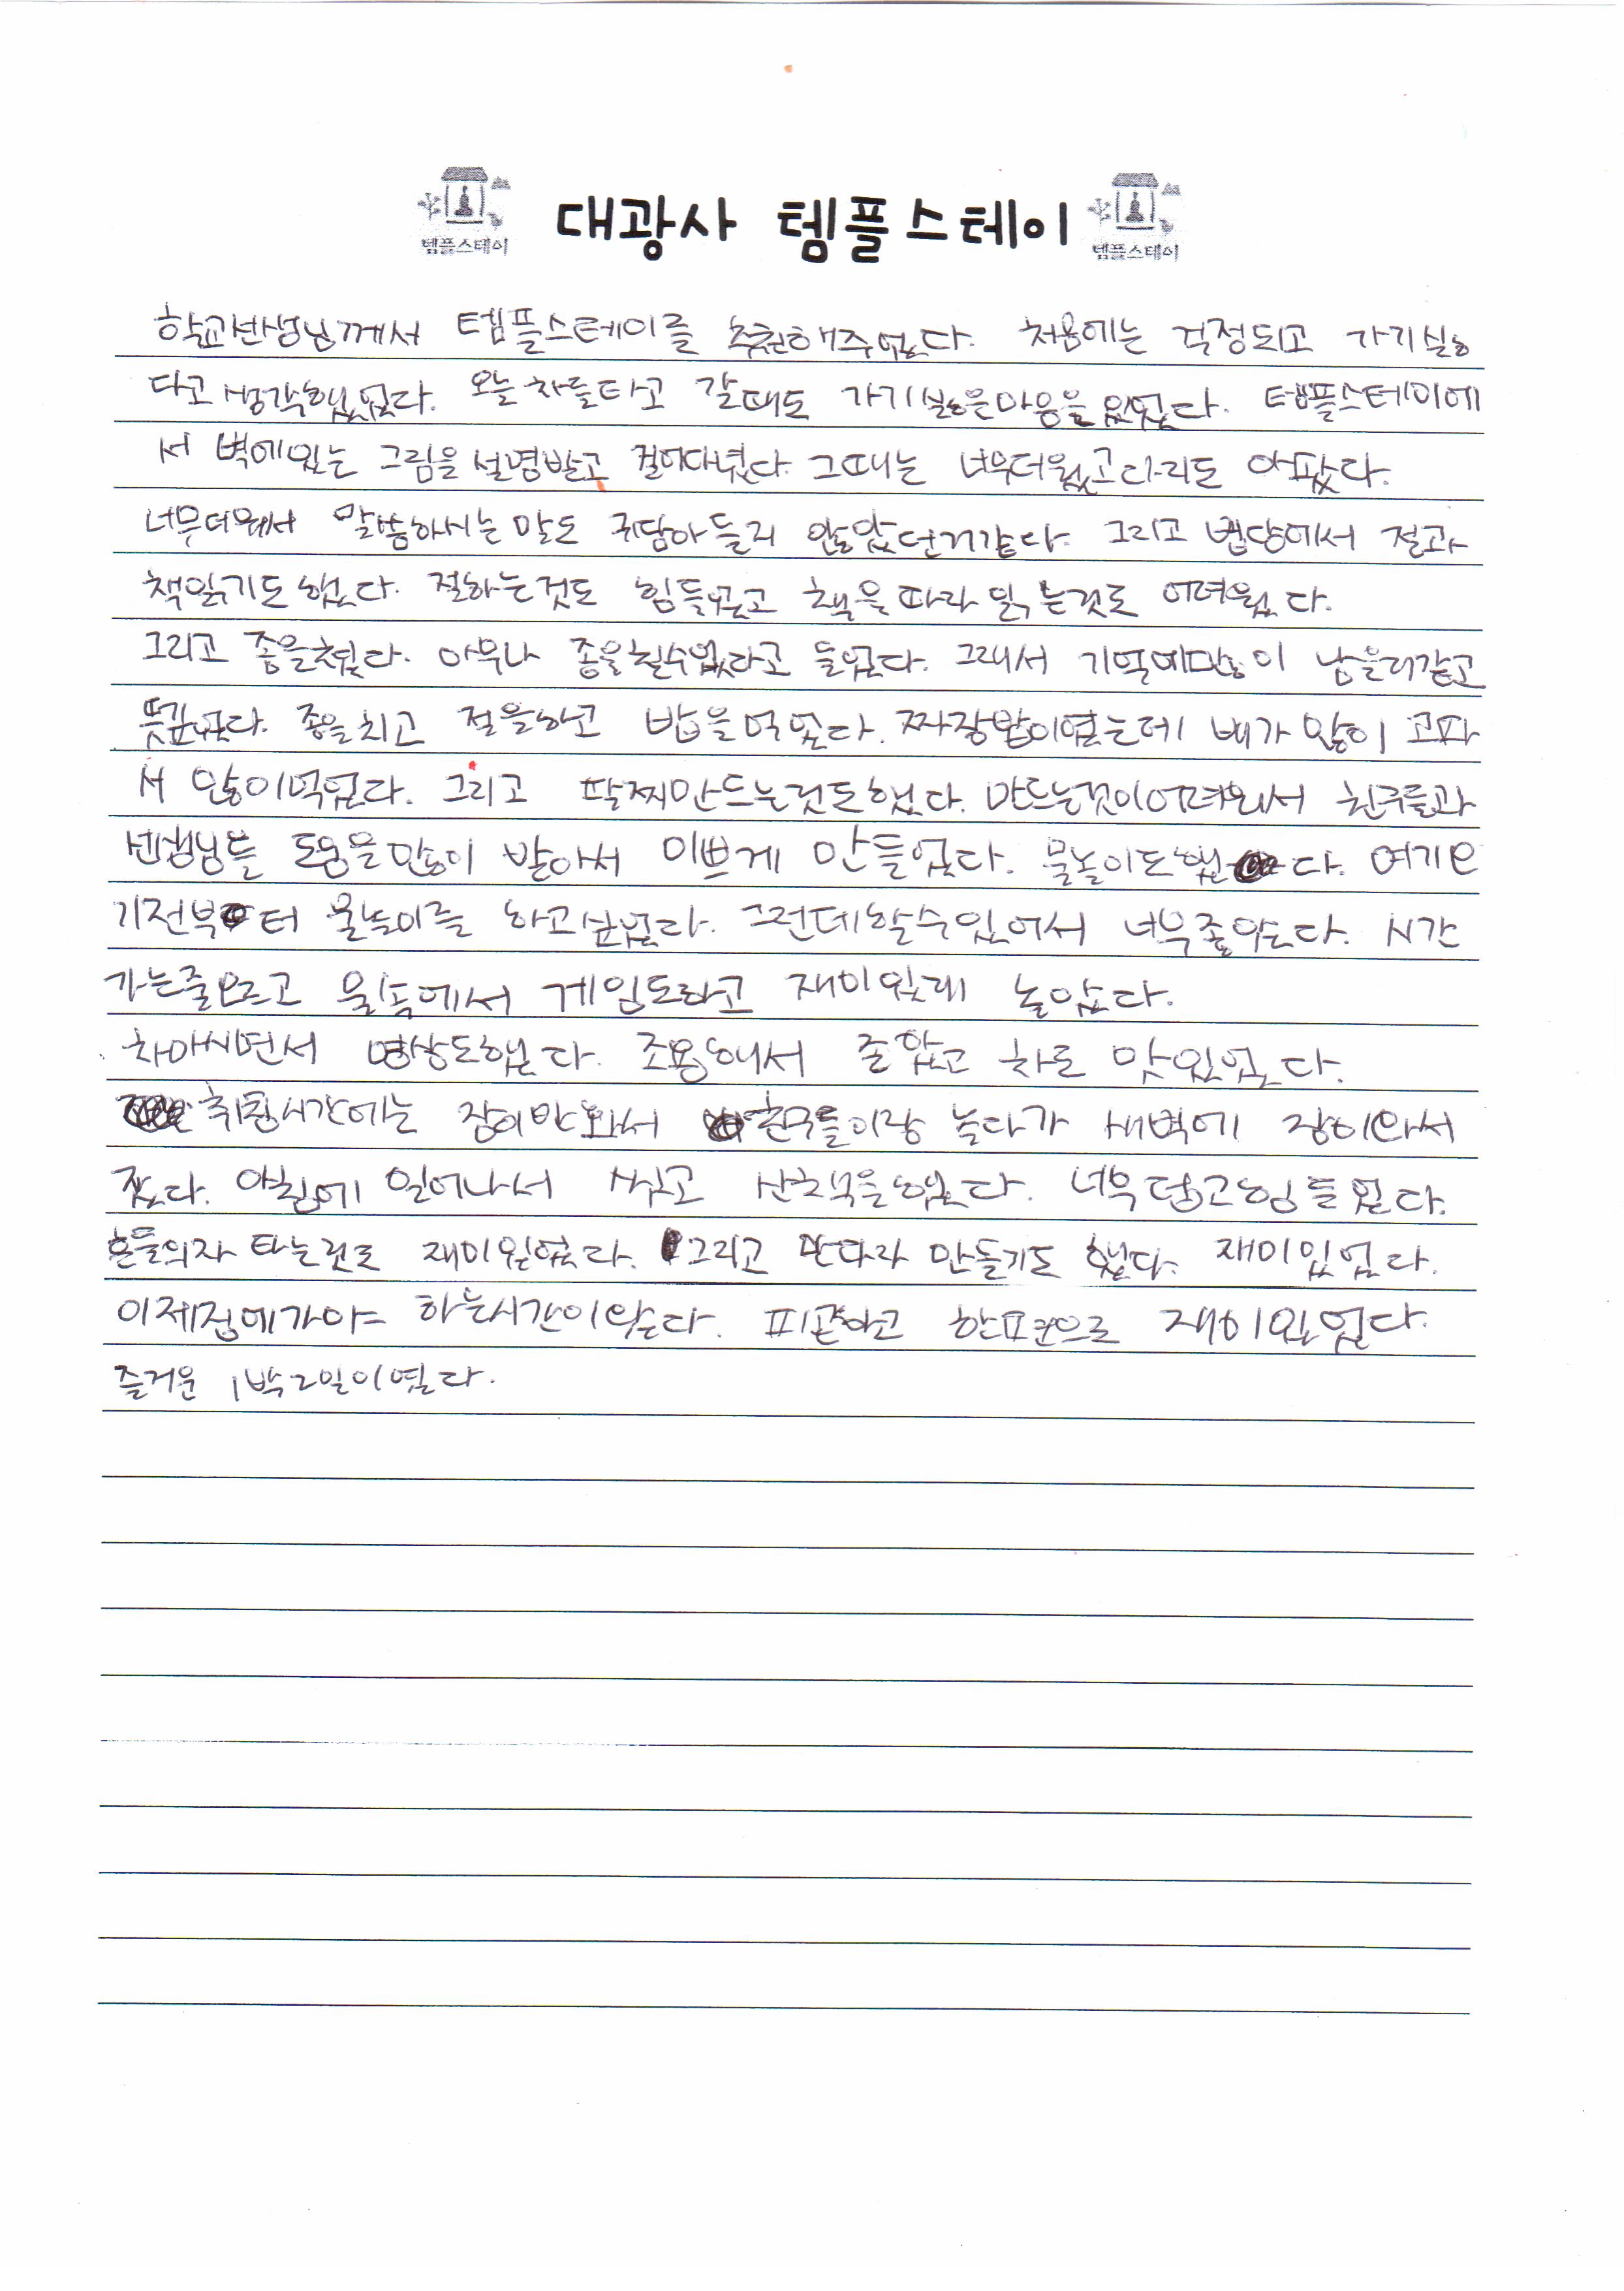 템플스테이 대광사 템플스테이 템플스테이
학교선생님께서 템플스테이를 추천해주었다. 처음에는 걱정되고 가기싫
다고 생각했었다. 오늘 차를타고 갈때도 가기싫은마음을 있었다. 템플스테이에
서 벽에있는 그림을 설명받고 걸어다녔다. 그때는 너무더웠고다리도 아팠다.
너무더워서 말씀하시는말도 귀담아들리 않았던거같다. 그리고 법당에서 절과
책읽기도했다. 절하는것도 힘들었고 책을따라 읽는것도 어려웠다.
그리고 종을쳤다. 아무나 종을칠수없다고 들었다. 그래서 기억에많이 남을거같고
뜻깊었다. 종을치고 절을하고 밥을먹었다. 짜장밥이였는데 배가 많이 고파
서 많이먹었다. 그리고 팔찌만드는것도했다. 만드는것이어려워서 친구들과
선생님들 도움을많이 받아서 이쁘게 만들었다. 물놀이도했 다. 여기오
기전부 터 물놀이를 하고싶었다. 그런데할수있어서 너무좋았다. 시간
가는줄모르고 물속에서 게임도하고 재미있게 놀았다.
차마시면서 명상도했다. 조용해서 좋았고 차도 맛있었다.
취침시간에는 잠이안와서 친구들이랑 놀다가 새벽에 잠이와서
잤다. 아침에 일어나서 씻고 산책을했다. 너무 덥고힘들었다.
흔들의자 타는것도 재미있었다. 그리고 만다라 만들기도 했다. 재미있었다.
이제집에가야 하는시간이왔다. 피곤하고 한편으로 재미있었다.
즐거운 1박2일이였다.